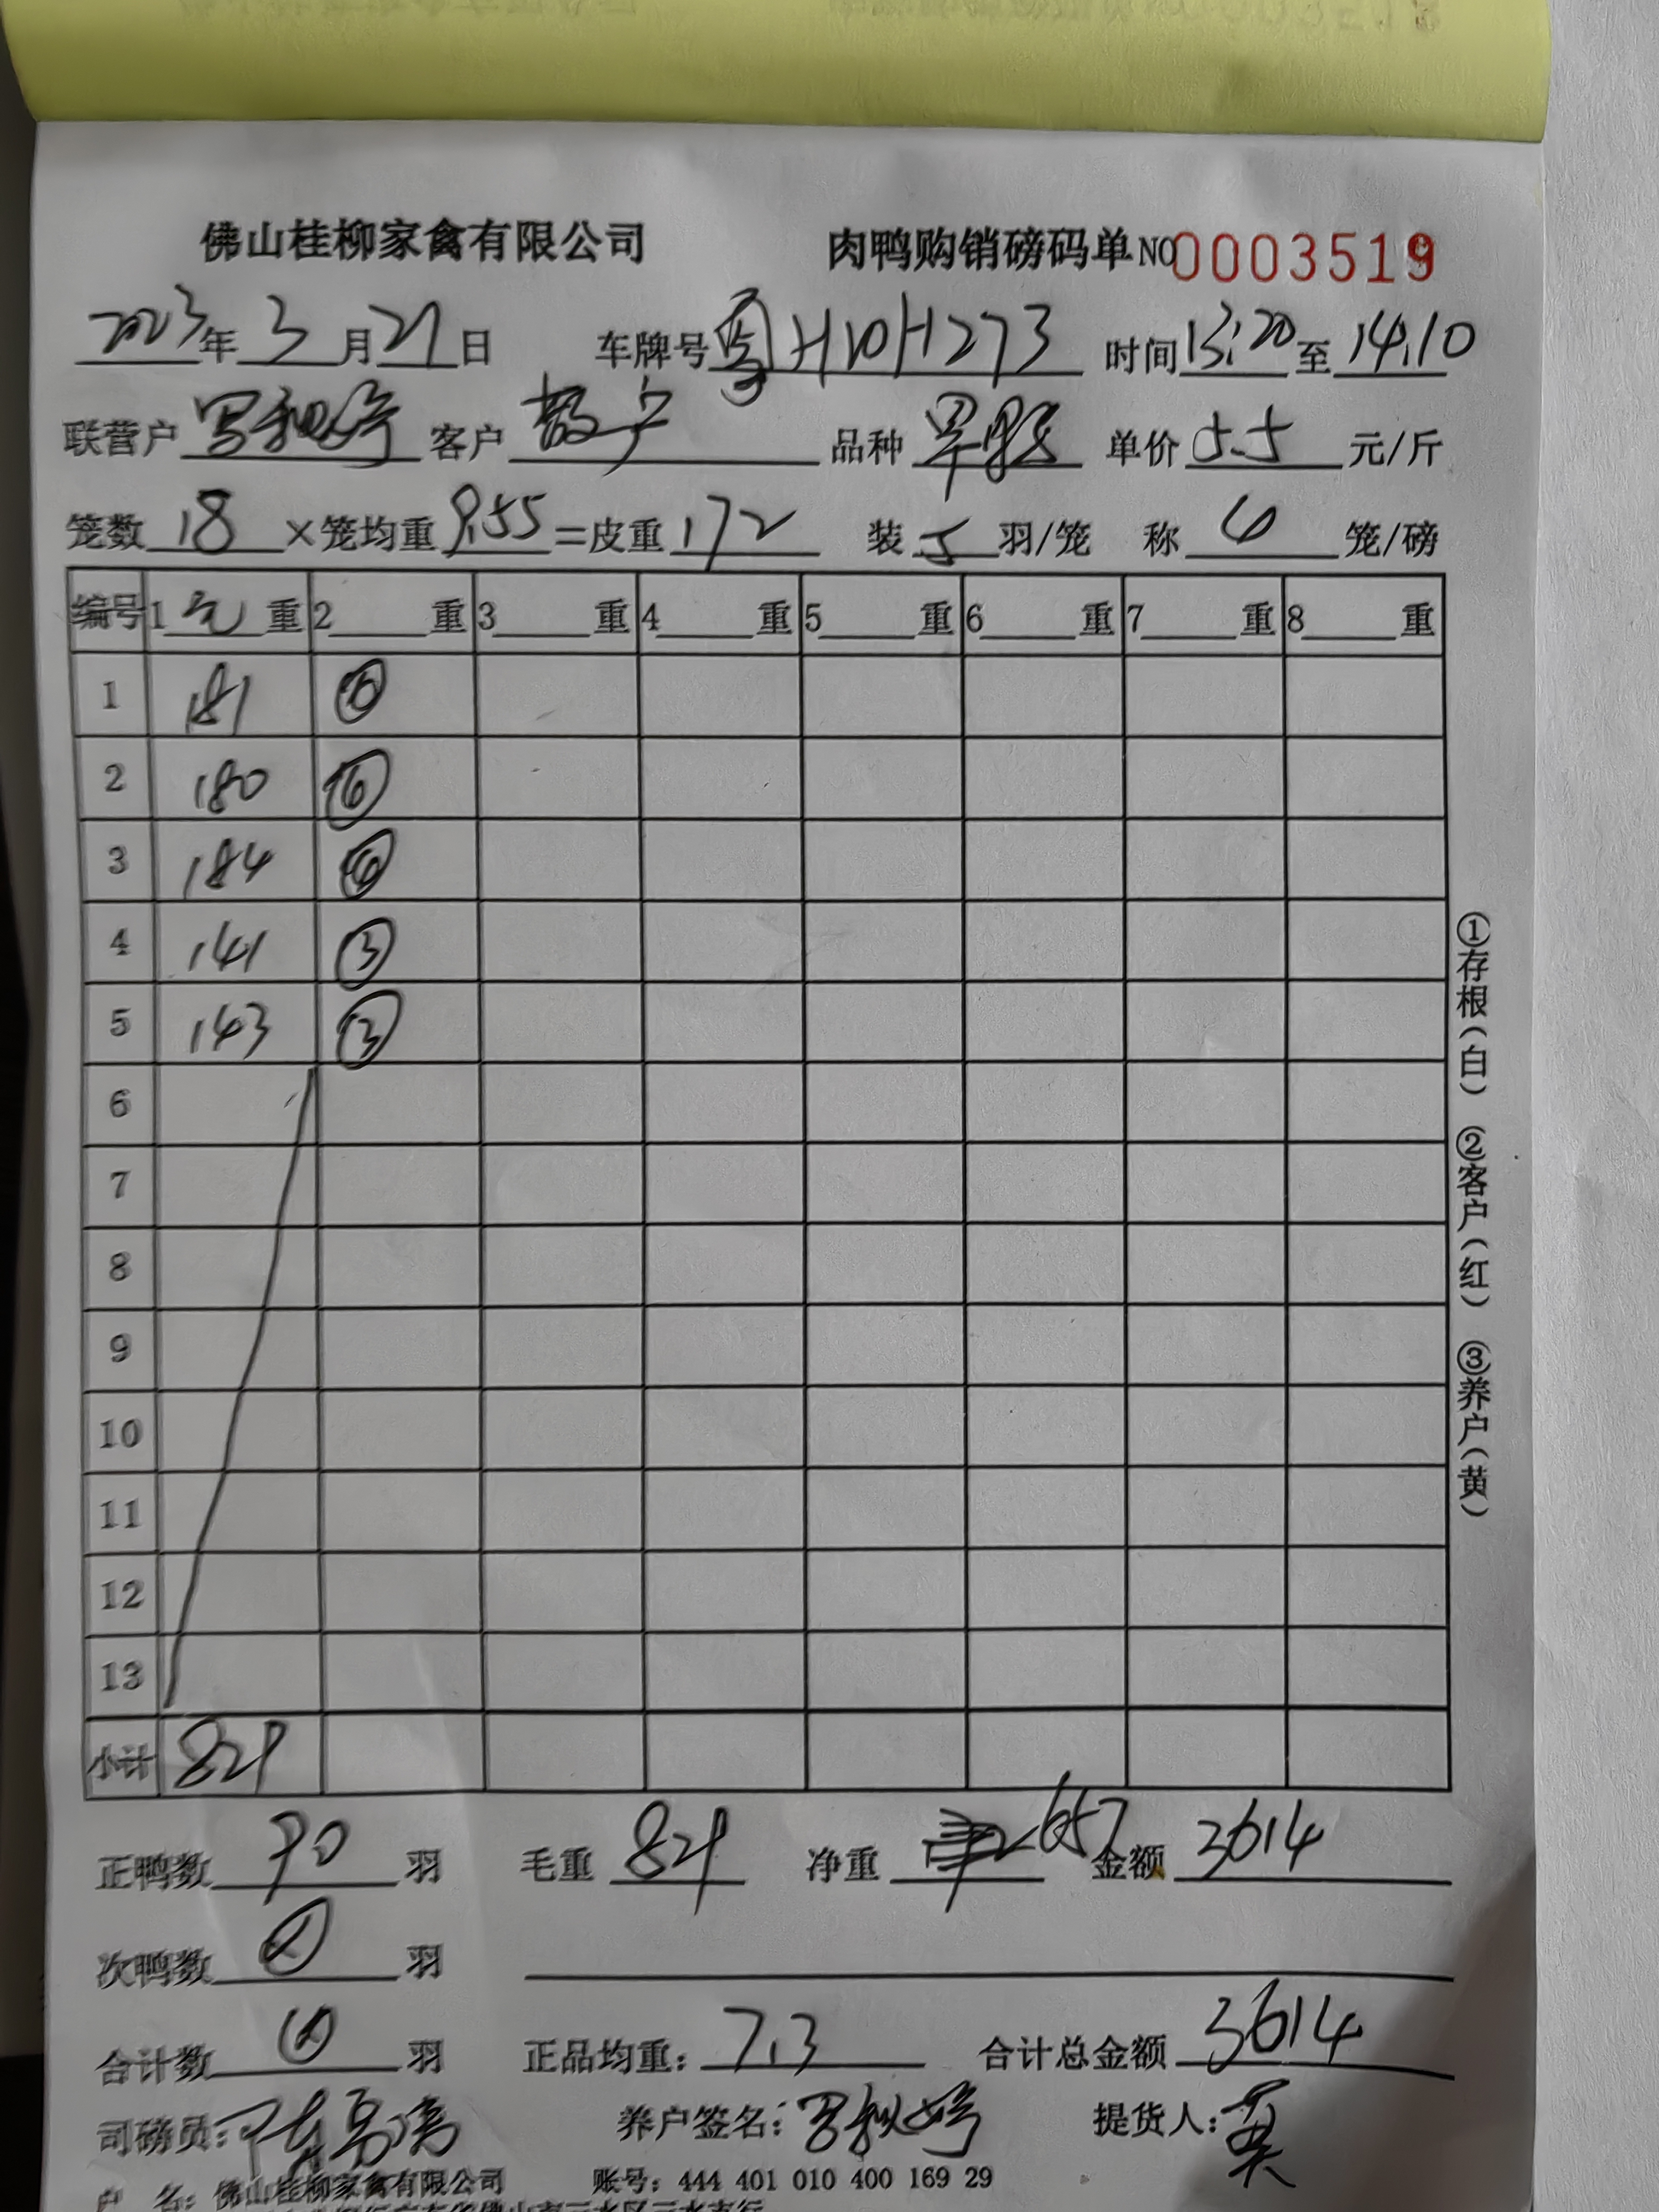 佛山桂柳家禽有限公司 肉鸭购销磅码单NO0003519
2023年3月21日 车牌号粤H10H273 时间13:20至14:10
联营户 客户散户 品种 单价5.5元/斤
笼数18×笼均重9.55=皮重172 装5羽/笼 称4笼/磅
编号 1毛重 2重 3重 4重 5重 6重 7重 8重
1 181
2 180
3 184
4 141 ③
5 143 ③
6
7
8
9
10
11
12
13
小计 829
正鸭数90羽 毛重829 净重657 金额3614
次鸭数羽
合计数羽 正品均重:7.3 合计总金额3614
司磅员: 养户签名: 提货人:
户 名:佛山桂柳家禽有限公司 账号:444 401 010 400 169 29
①存根(白) ②客户(红) ③养户(黄)